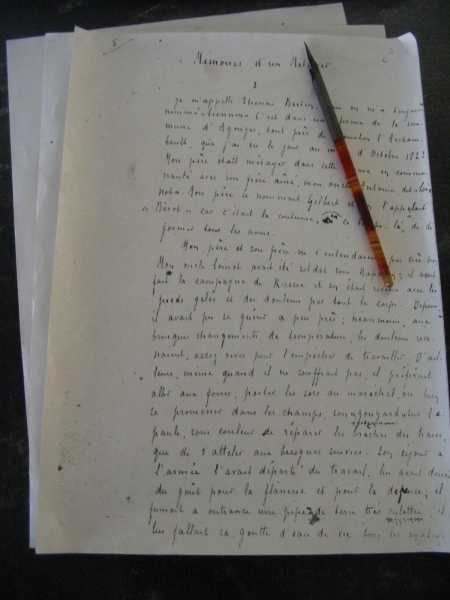 Mémoires d'un Métayer
I
Je m'appelle Etienne Bertin, on m'a toujours
nommé «Tiennon». C'est dans une ferme de la com-
mune d'Agonges, tout près de Bourbon l'Archam-
bault, que j'ai vu le jour au d'Octobre 1823
Mon père était métayer dans cette en commu-
nauté avec son frère aîné, mon oncle Antoine dit «Toi-
not». Mon père se nommait Gilbert et on l'appelait
«Bérot» car c'était la coutume, en ce temps-là, de dé-
former tous les noms.
Mon père et son frère ne s'entendaient pas très bien
Mon oncle Toinot avait été soldat sous Napoléon; il avait
fait la campagne de Russie et en était revenu avec les
pieds gelés et des douleurs par tout le corps. Depuis
il avait pu se guérir à peu près; néanmoins, aux
brusques changements de température, les douleurs reve-
naient, assez vives pour l'empêcher de travailler. D'ail-
leurs, même quand il ne souffrait pas, il préférait
aller aux foires, porter les socs au maréchal, ou bien
se promener dans les champs, son gouyard sur l'é-
paule, sous couleur de réparer les brèches des haies,
que de s'atteler aux besognes suivies. Son séjour à
l'armée l'avait déporté du travail, lui avait donné
du goût pour la flânerie et pour la dépense; il
fumait à outrance une pipe de terre très culottée, il
lui fallait sa goutte d'eau de vie tous les matins